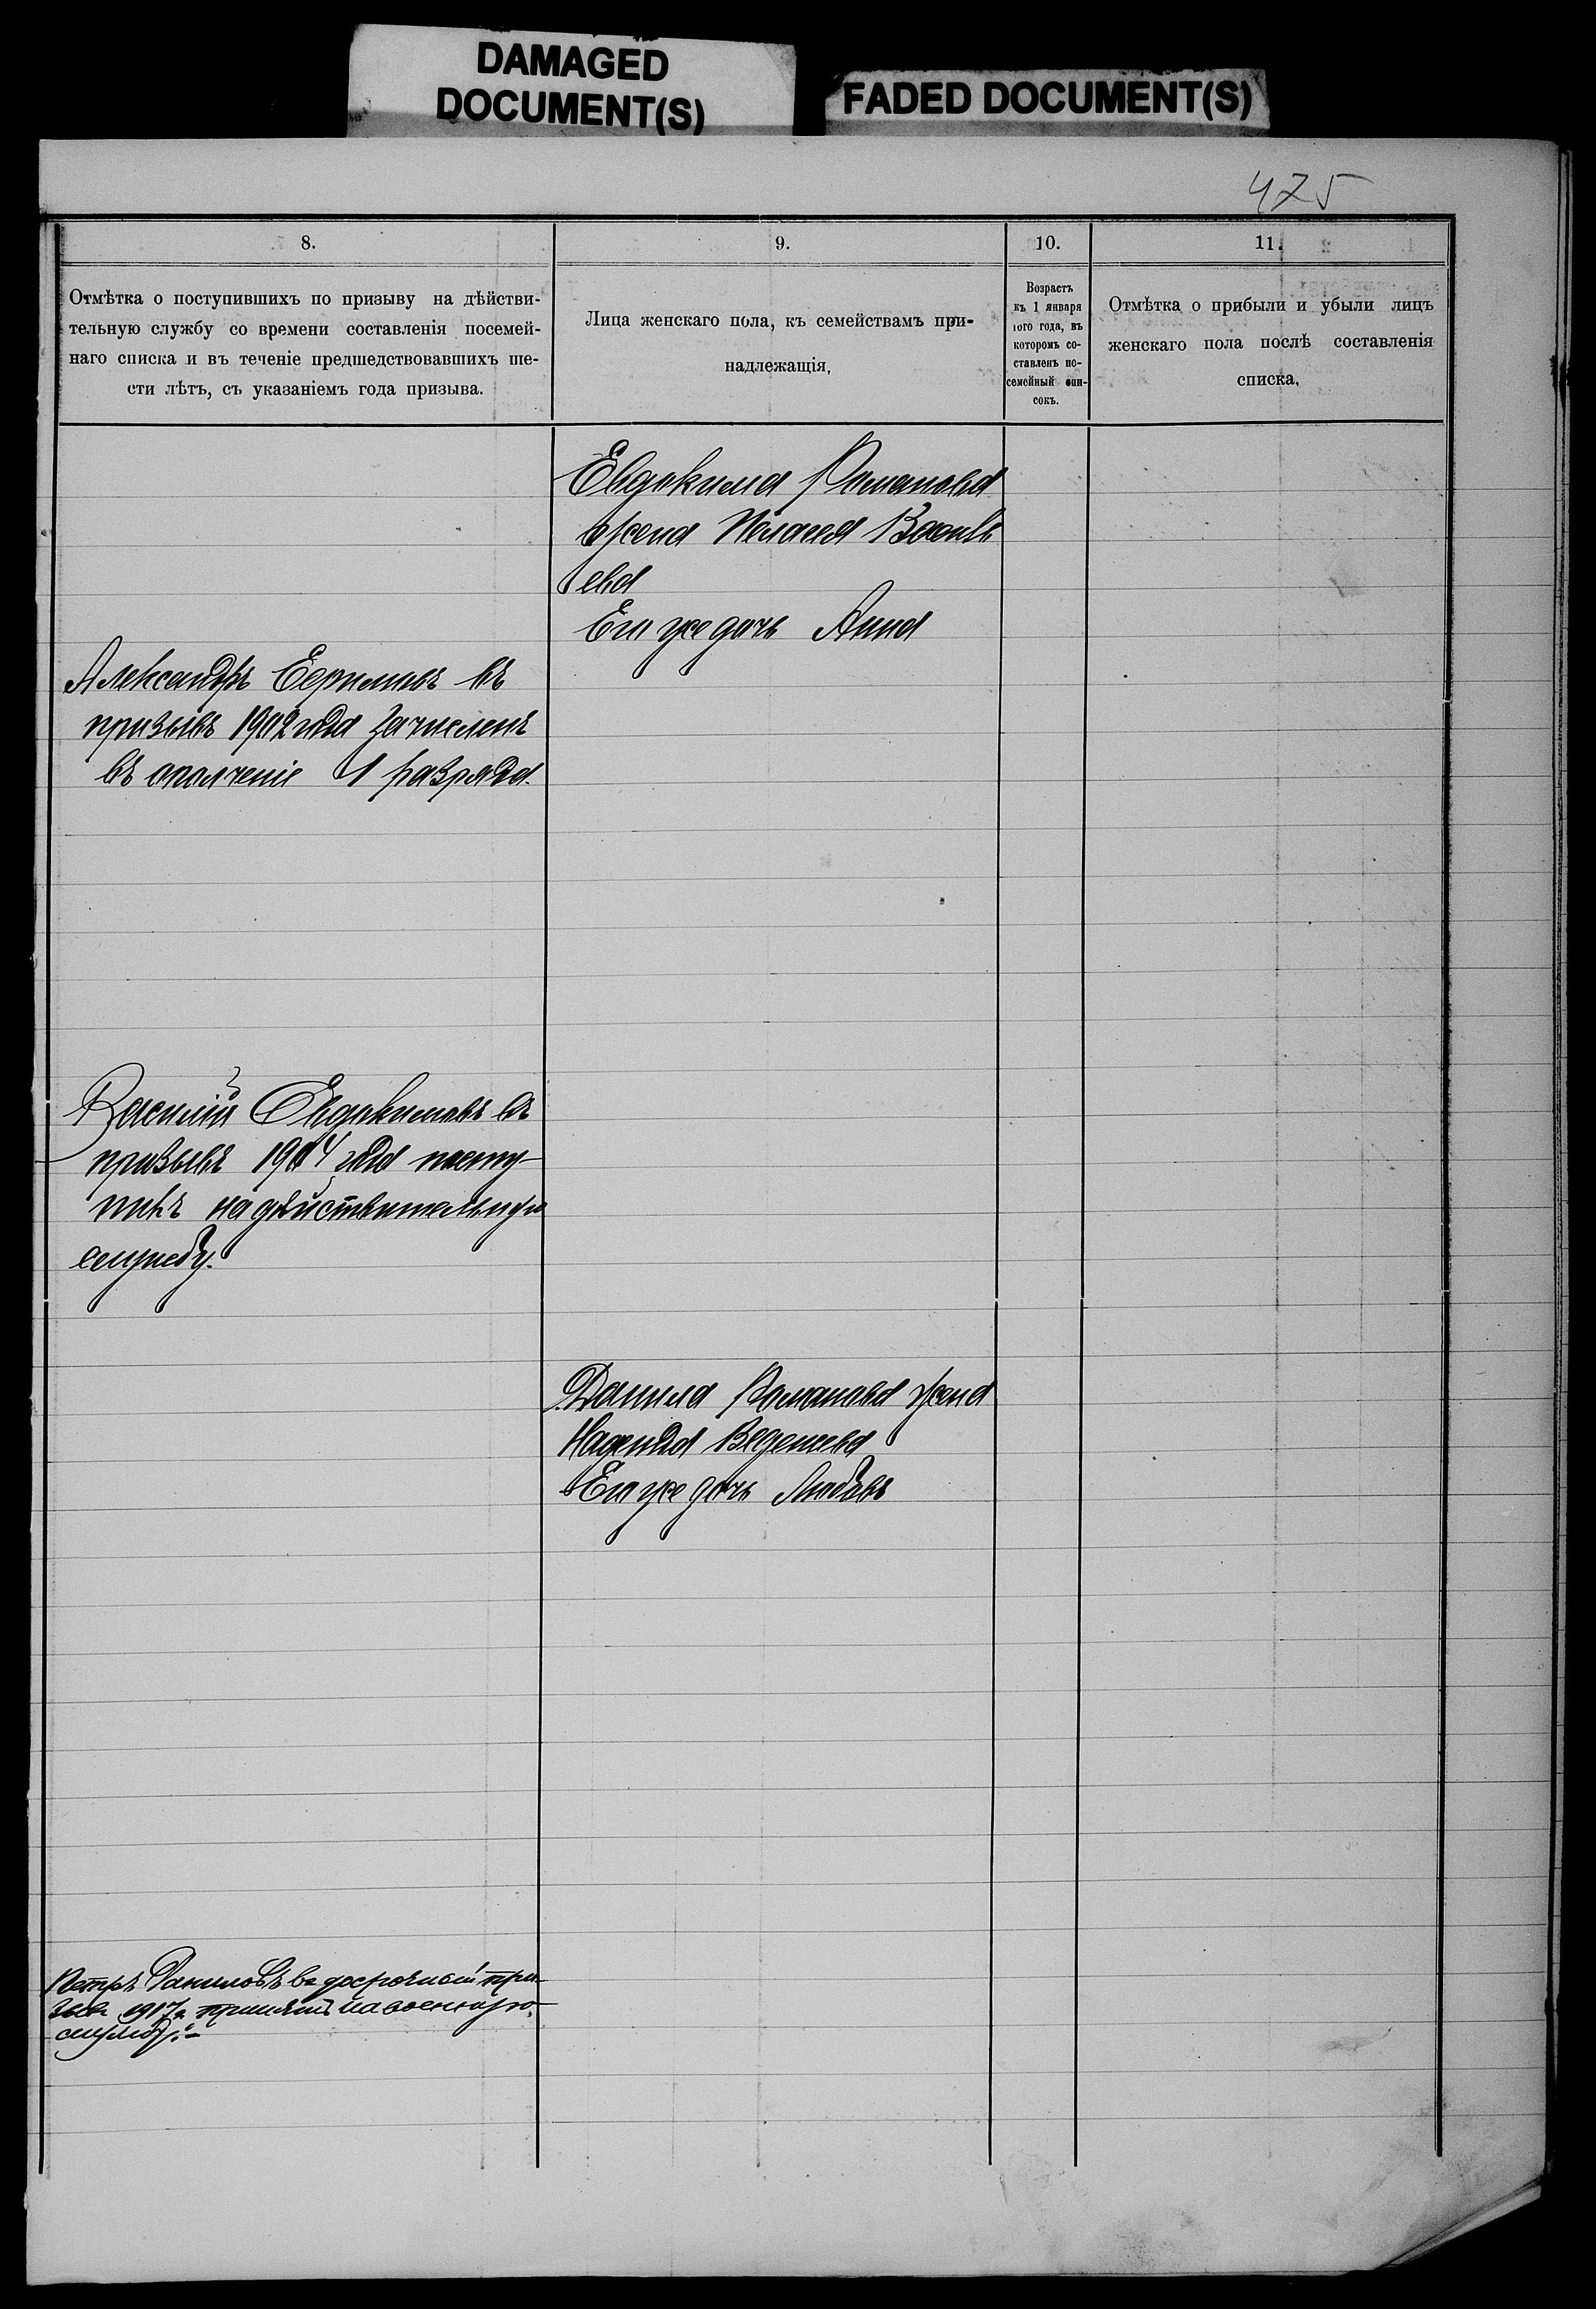 DAMAGED
DOCUMENT(S)
FADED DOCUMENT(S)
475
8.
Отмѣтка о поступившихъ по призыву на дѣйстви-
тельную службу со времени составленія посемей-
наго списка и въ теченіе предшедствовавшихъ ше-
сти лѣтъ, съ указаніемъ года призыва.
9.
Лица женскаго пола, къ семействамъ при-
надлежащія,
10.
Возрастъ
къ 1 января
того года, въ
которомъ со-
ставленъ по-
семейный спи-
сокъ.
11.
Отмѣтка о прибыли и убыли лицъ
женскаго пола послѣ составленія
списка.
Евдокима Романова
жена Пелагея Василь
ева
Его же дочь Анна
Александръ въ
призывъ 1902 года зачисленъ
въ ополченіе 1 разряда.
Василій Евдокимовъ въ
призывъ 1904 года посту-
пилъ на дѣйствительную
службу.
Данила Романова жена
Надежда
Его же дочь Любовь
Петръ Даниловъ въ досрочный при-
зывъ 1917 г. принятъ на военную
службу.-